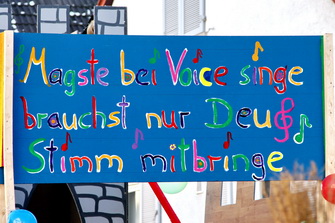 Magste bei Voice singe
brauchst nur Deu
Stimm mitbringe